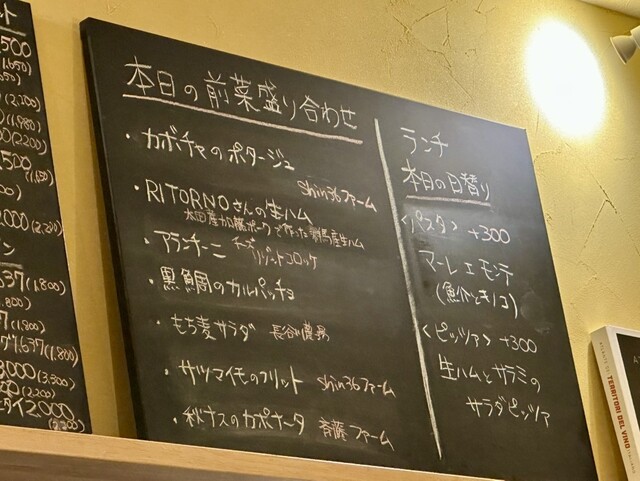 本日の前菜盛り合わせ
・カボチャのポタージュ
shin36ファーム
・RITORNOさんの生ハム
太田産加藤ポークで作った群馬産生ハム
・アランチーニ チーズリゾットコロッケ
・黒鯛のカルパッチョ
・もち麦サラダ 長谷川農場
・サツマイモのフリット shin36ファーム
・秋ナスのカポナータ 斉藤ファーム
ランチ
本日の日替り
<パスタ> +300
マーレ エ モンテ
(魚介とキノコ)
<ピッツァ> +300
生ハムとサラミの
サラダピッツァ
(2,200)
(1,980)
(2,200)
2,000 (2,200)
(1,800)
3000 (3,300)
(2,200)
2,000
(2,200)
TERRITORI DEL VINO